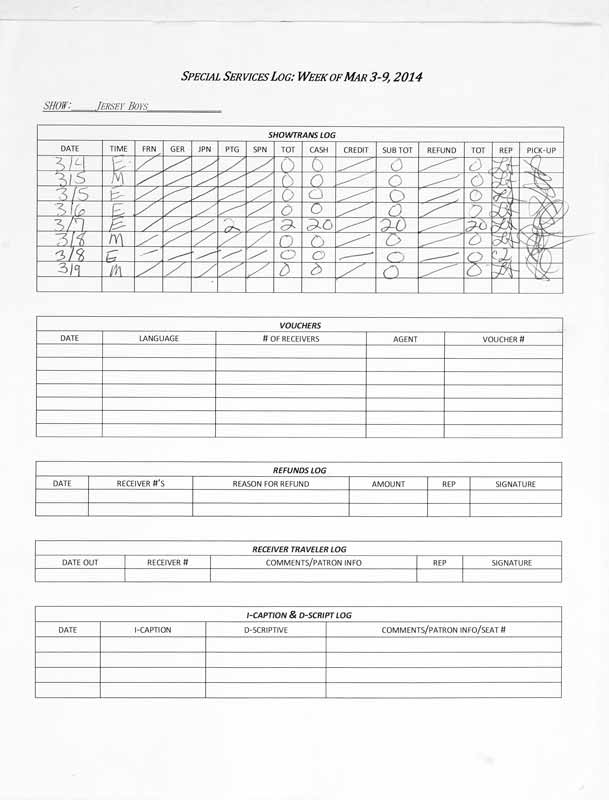 SPECIAL SERVICES LOG: WEEK OF MAR 3-9, 2014
SHOW: JERSEY BOYS
SHOWTRANS LOG
DATE TIME FRN GER JPN PTG SPN TOT CASH CREDIT SUB TOT REFUND TOT REP PICK-UP
3/4 E 0 0 0 0
3/5 M 0 0 0 0
3/5 E 0 0 0 0
3/6 E 0 0 0 0
3/7 E 2 2 20 20 20
3/8 M 0 0 0 0
3/8 E 0 0 0 0
3/9 M 0 0 0 0
VOUCHERS
DATE LANGUAGE # OF RECEIVERS AGENT VOUCHER #
REFUNDS LOG
DATE RECEIVER #'S REASON FOR REFUND AMOUNT REP SIGNATURE
RECEIVER TRAVELER LOG
DATE OUT RECEIVER # COMMENTS/PATRON INFO REP SIGNATURE
I-CAPTION & D-SCRIPT LOG
DATE I-CAPTION D-SCRIPTIVE COMMENTS/PATRON INFO/SEAT #